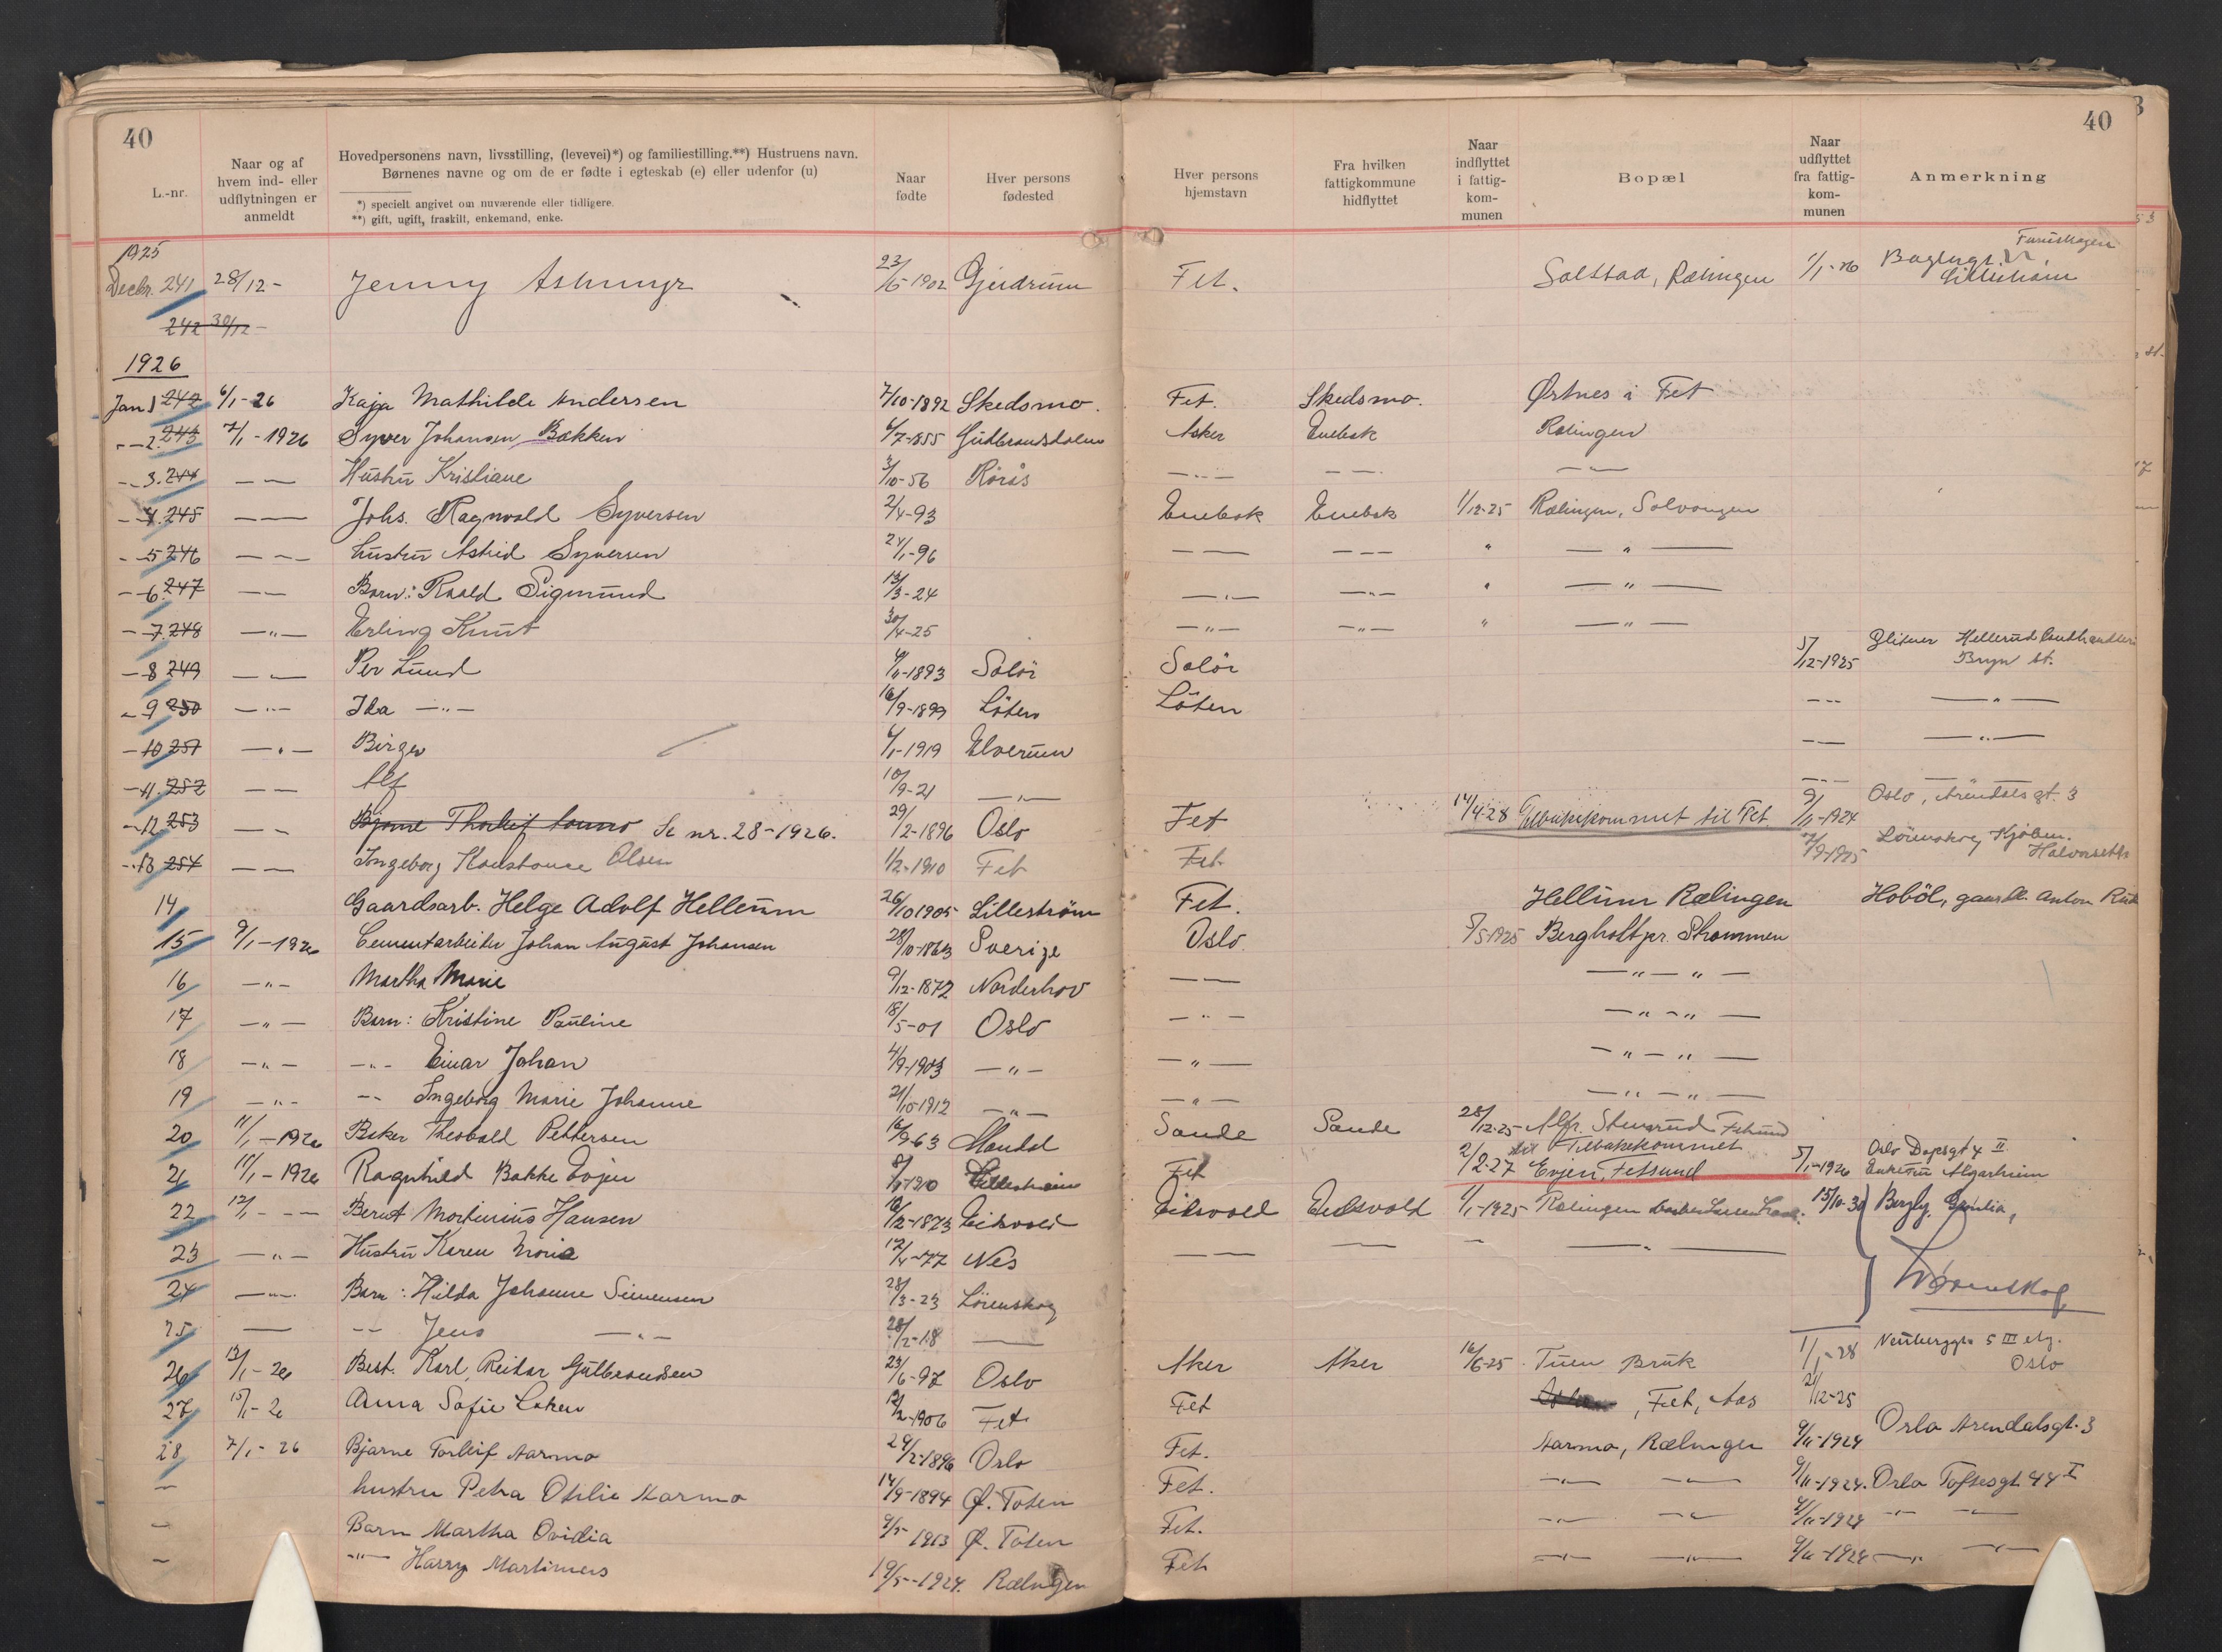 40
40
L.-nr.
Naar og af hvem ind- eller udflytningen er anmeldt
Hovedpersonens navn, livsstilling, (levevei)*) og familiestilling.**) Hustruens navn.
Børnenes navne og om de er fødte i egteskab (e) eller udenfor (u)
*) specielt angivet om nuværende eller tidligere.
**) gift, ugift, fraskilt, enkemand, enke.
Naar fødte
Hver persons fødested
Hver persons hjemstavn
Fra hvilken fattigkommune hidflyttet
Naar indflyttet i fattig-kom-munen
Bopæl
Naar udflyttet fra fattig-kom-munen
Anmerkning
1925
Decbr. 241 28/12 - Jenny 23/5 1902 Gjerdrum Fet. Rælingen 1/1-26 Lillestrøm
242 30/12 -
1926
Jan 1 242 6/1-26 Kaja Mathilde Andersen 7/10-1892 Skedsmo. Fet. Skedsmo. Østnes i Fet
- - 2 243 7/1-1926 Syver Johansen Bakken 6/7-1855 Gudbrandsdalen Asker Enebak Rælingen
- - 3. 244 — — Hustru Kristiane 3/10-56 Rörås — — — — — —
- - 4. 245 — — Johs. Ragnvald Syversen 2/4-93 Enebak Enebak 1/12-25 Rælingen, Solvangen
- - 5 246 — — hustru Astrid Syversen 24/1-96 — — — — " — " —
- - 6 247 — — Barn: Roald Sigmund 13/3-24 — " — — " — " — " —
- - 7. 248 — " — Erling Knut 30/4-25 — " — — " — " — " —
- 8 249 — — Per Lund 1893 Solör Solör 5/12-1925 Hellerud Landhandleri
Bryn st.
- 9 250 — " — Ida — " — 16/9-1899 Löten Löten — — — " —
- 10 251 — " — Birger 6/1-1919 Elverum — — — " —
- 11. 252 — — Alf 10/9-21 — " — — " — —
- 12. 253 — — Bjarne Thorleif Se nr. 28-1926. 29/2-1896 Oslo Fet 14/4-28 Tilbakekommet til Fet. 9/11-1924 Oslo, Arendalsgt. 3
- 13 254 — — Ingeborg Konstanse Olsen 1/2-1910 Fet Fet. 1925 Lörenskog Kjöbm.
14 Gaardsarb. Helge Adolf Hellerum 26/10 1905 Lilleström Fet. Rælingen Hoböl, Anton
15 9/1-1926 Cementarbeider Johan August Johansen 28/10-1863 Sverige Oslo. 5/5-1925 Bergholt pr. Strømmen
16 — " — Martha Marie 9/12-1872 Norderhov — — — " — " —
17 — " — Barn: Kristine Pauline 18/5-01 Oslo — " — — " — " —
18 — " — — " — Einar Johan 4/9-1903 — " — — " — — " — " —
19 — " — — — Ingeborg Marie Johanne 21/10-1912 — " — — " — — " — " —
20 11/1-1926 Baker Theobald Pettersen 63 Mandal Sande Sande 28/12-25 Alfr. Stensrud Fetsund
21 11/1-1926 Ragnhild Bakke Evjen 1910 Lilleström Fet 2/2-27 til Tilbakekommet Evjen, Fetsund 5/1-1926 Oslo Dopsgt 4 II.
22 12/1 - - — Bernt Martinius Hansen 1873 Eidsvold Eidsvold Eidsvold 1/1-1925 Rælingen 15/10-30 Bergly,
23 — " — Hustru Karen Maria 12/4-77 Nes — — — — — " —
24 — " — Barn: Hilda Johanne Simensen 28/3-23 Lörenskog Lørenskog
25 — — - - Jens — " — 28/2-18 —
26 13/1-26 Best. Karl Reidar Gulbrandsen 23/6-97 Oslo Aker Aker 16/6-25 Tuen Bruk 1/1-28 5 III etg.
Oslo
27 15/1-26 Anna Sofie 1906 Fet Fet , Fet, Aas 21/12-25
28 7/1-26 Bjarne Torleif Aarmo 29/2-1896 Oslo Fet. Aarmo, Rælingen 9/11-1924 Oslo Arendalsgt. 3
— hustru Petra Otilie Aarmo 14/9-1894 Ø. Toten Fet. — " — — " — 9/11-1924. Oslo Toftesgt 44 I
— Barn Martha Ovidia 9/5 1913 Ø. Toten Fet. — " — — " — 9/11-1924 — " — —
— — " — Harry Martinius 19/5-1924. Rælingen Fet — " — — " — 9/11-1924 — " — — " —